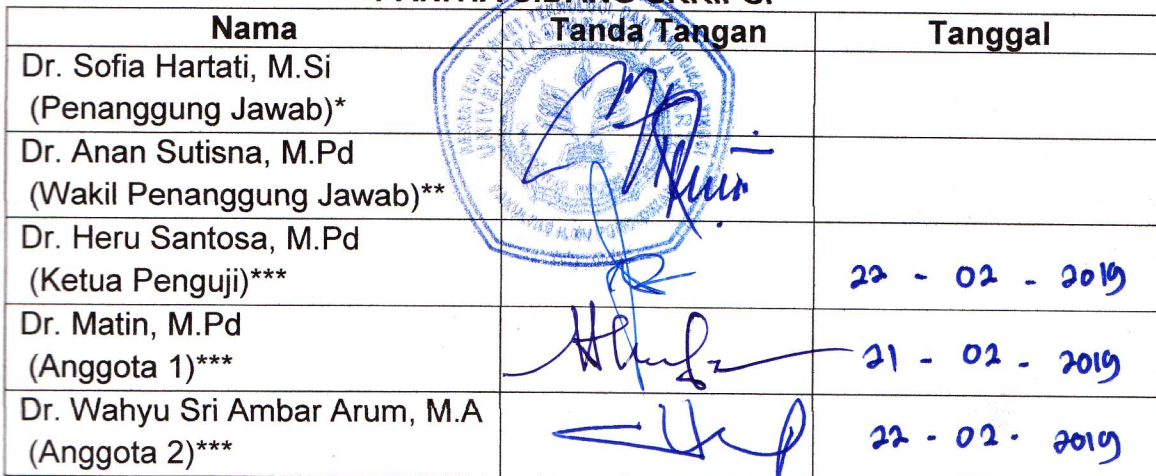 Nama Tanda Tangan Tanggal
Dr. Sofia Hartati, M.Si
(Penanggung Jawab)*
Dr. Anan Sutisna, M.Pd
(Wakil Penanggung Jawab)**
Dr. Heru Santosa, M.Pd
(Ketua Penguji)*** 22 - 02 - 2019
Dr. Matin, M.Pd
(Anggota 1)*** 21 - 02 - 2019
Dr. Wahyu Sri Ambar Arum, M.A
(Anggota 2)*** 22 - 02 - 2019